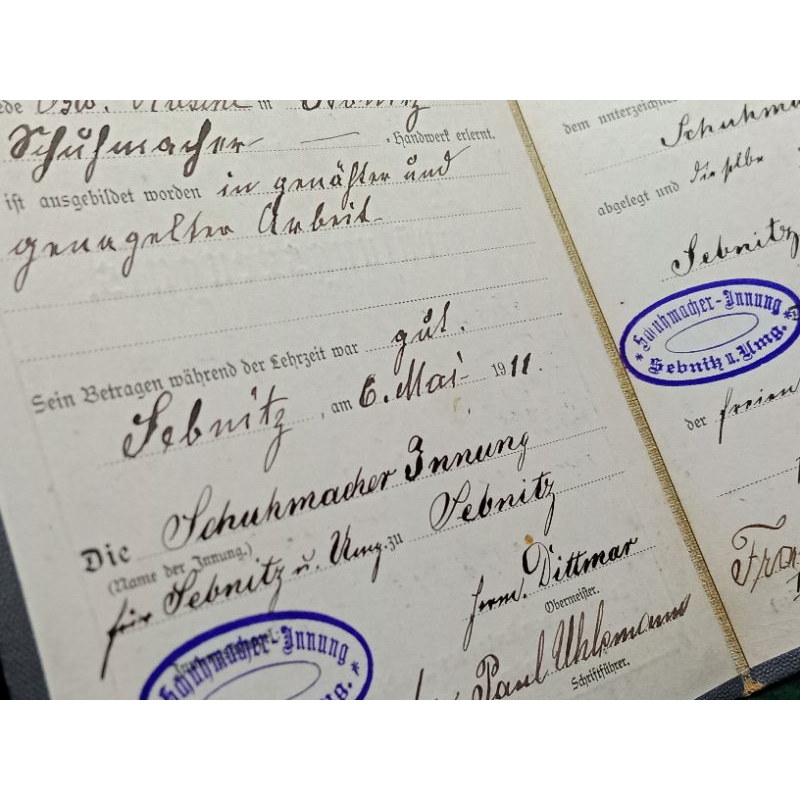 in Sebnitz
Schuhmacher - Handwerk erlernt.
ist ausgebildet worden in genähter und
genagelter Arbeit
Sein Betragen während der Lehrzeit war gut.
Sebnitz, am 6. Mai 1911.
Die Schuhmacher Innung
(Name der Innung.)
für Sebnitz u. Umg. zu Sebnitz
Herm. Dittmar
Obermeister.
Schuhmacher-Innung
Umg.
Paul Uhlemann
Schriftführer.
dem unterzeichne
Schuhma
abgelegt und dieselbe
Sebnitz
* Schuhmacher-Innung *
Sebnitz u. Umg.
der freien
Fra